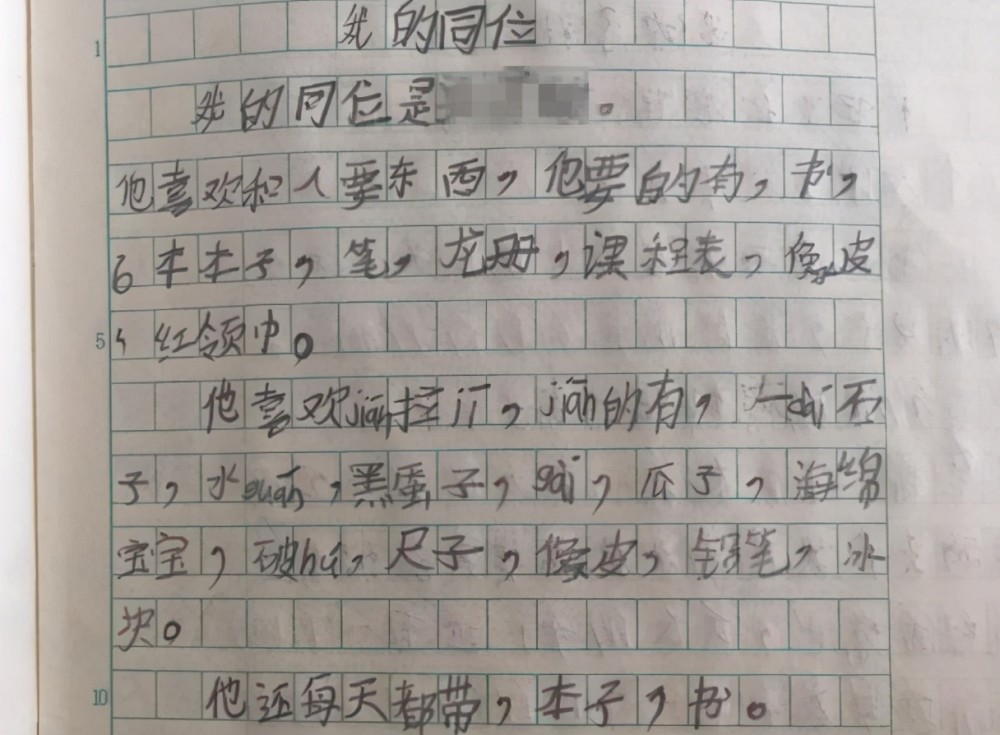 我的同位
我的同位是 。
他喜欢和人要东西，他要的有，书，
6本本子，笔，龙册，课程表，像皮
，红领巾。
他喜欢jiǎn拉jī，jiǎn的有，一dài石
子，水guǎn，黑蛋子，gài，瓜子，海绵
宝宝，破hú，尺子，像皮，铅笔，冰
块。
他还每天都带，本子，书。
1
5
10